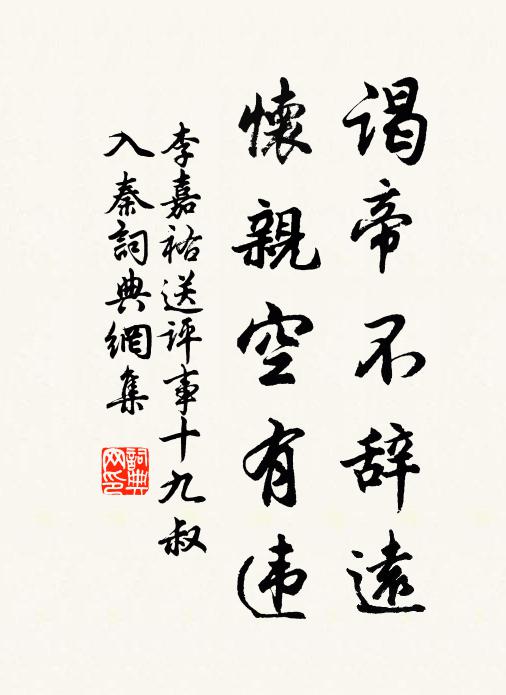 谒帝不辞遠
懷親空有违
李嘉祐送评事十九叔
入秦詞典網集
詞典网印